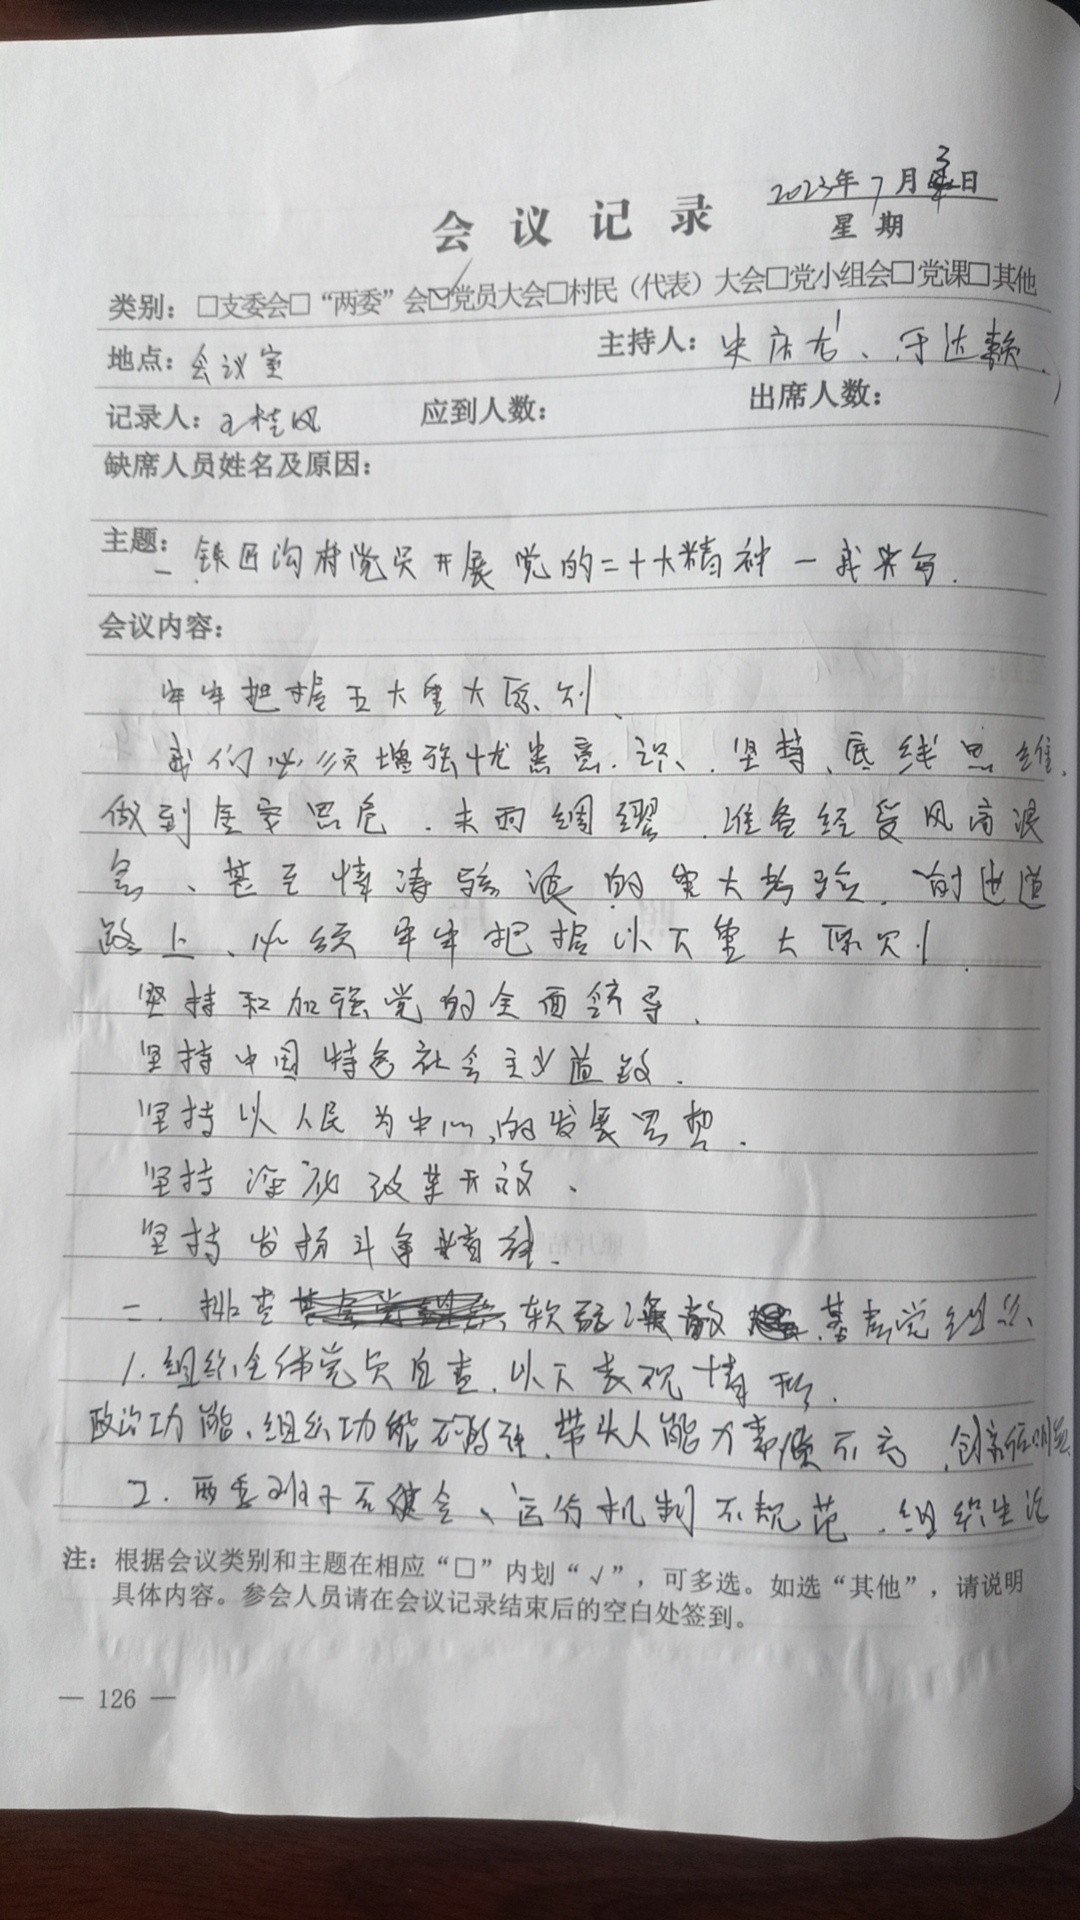 2023年7月3日
会议记录
星期
类别：□支委会□“两委”会☑党员大会□村民（代表）大会□党小组会□党课□其他
地点：会议室 主持人：
记录人：王桂凤 应到人数： 出席人数：
缺席人员姓名及原因：
主题：
一.铁匠沟村党员开展党的二十大精神
会议内容：
牢牢把握五大重大原则、
我们必须增强忧患意识、坚持、底线思维、
做到居安思危、未雨绸缪、准备经受风高浪
急、甚至惊涛骇浪的重大考验、前进道
路上、必须牢牢把握以下重大原则、
坚持和加强党的全面领导、
坚持中国特色社会主义道路、
坚持以人民为中心的发展思想、
坚持深化改革开放、
坚持发扬斗争精神、
二、排查软弱涣散基层党组织
1.组织全体党员自查、以下表现情形、
政治功能、组织功能不够强、带头人能力素质不高、
2.两委班子不健全、运行机制不规范、组织生活
注：根据会议类别和主题在相应“□”内划“√”，可多选。如选“其他”，请说明
具体内容。参会人员请在会议记录结束后的空白处签到。
— 126 —